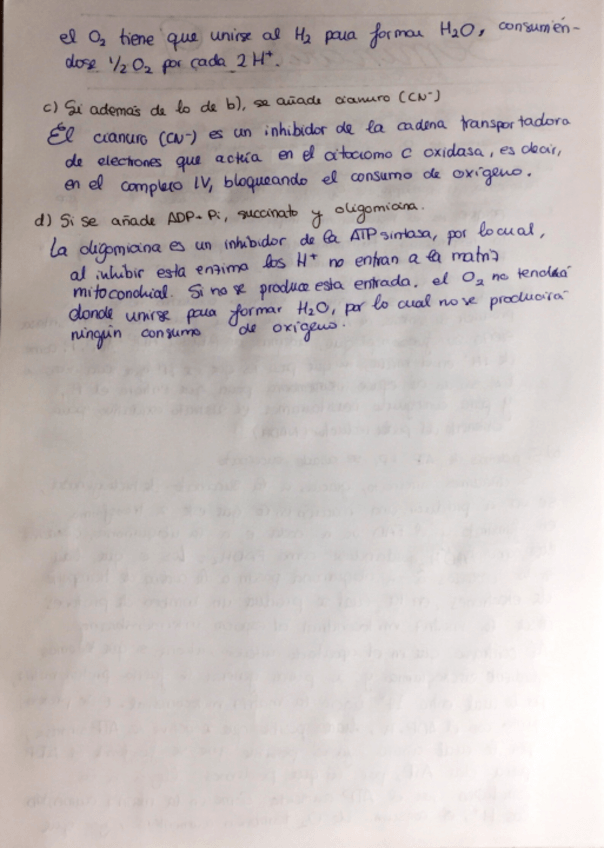 el O₂ tiene que unirse al H₂ para formar H₂O, consumién-
dose ½ O₂ por cada 2 H⁺.
c) Si además de lo de b), se añade cianuro (CN⁻)
El cianuro (CN⁻) es un inhibidor de la cadena transportadora
de electrones que actúa en el citocromo c oxidasa, es decir,
en el complejo IV, bloqueando el consumo de oxígeno.
d) Si se añade ADP + Pi, succinato y oligomicina.
La oligomicina es un inhibidor de la ATP sintasa, por lo cual,
al inhibir esta enzima los H⁺ no entran a la matriz
mitocondrial. Si no se produce esta entrada, el O₂ no tendrá
donde unirse para formar H₂O, por lo cual no se producirá
ningún consumo de oxígeno.